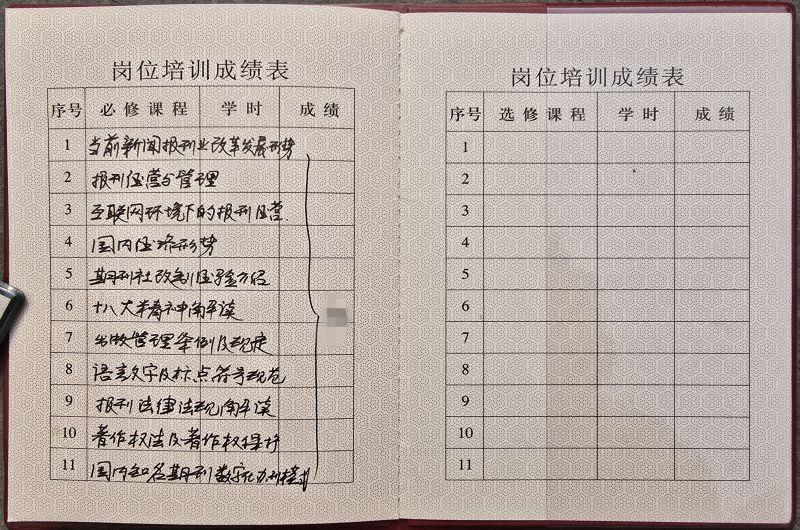 岗位培训成绩表
序号 必修课程 学时 成绩
1 当前新闻报刊业改革发展形势
2 报刊经营与管理
3 互联网环境下的报刊经营
4 国内经济形势
5 期刊社改制经验介绍
6 十八大精神解读
7 出版管理条例及规定
8 语言文字及标点符号规范
9 报刊法律法规解读
10 著作权法及著作权保护
11 国内知名期刊数字化办刊模式
岗位培训成绩表
序号 选修课程 学时 成绩
1
2
3
4
5
6
7
8
9
10
11